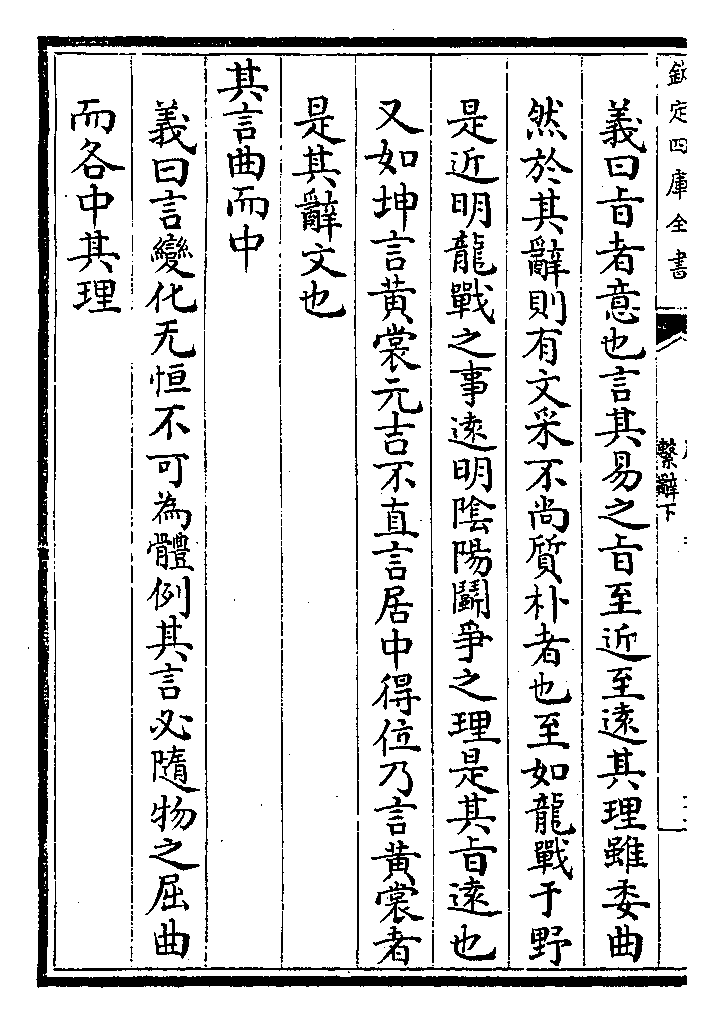 欽定四庫全書
繫辭下
義曰㫖者意也言其易之㫖至近至遠其理雖委曲
然於其辭則有文采不尚質朴者也至如龍戰于野
是近明龍戰之事遠明陰陽鬬爭之理是其㫖遠也
又如坤言黄裳元吉不直言居中得位乃言黄裳者
是其辭文也
其言曲而中
義曰言變化无恒不可為體例其言必隨物之屈曲
而各中其理